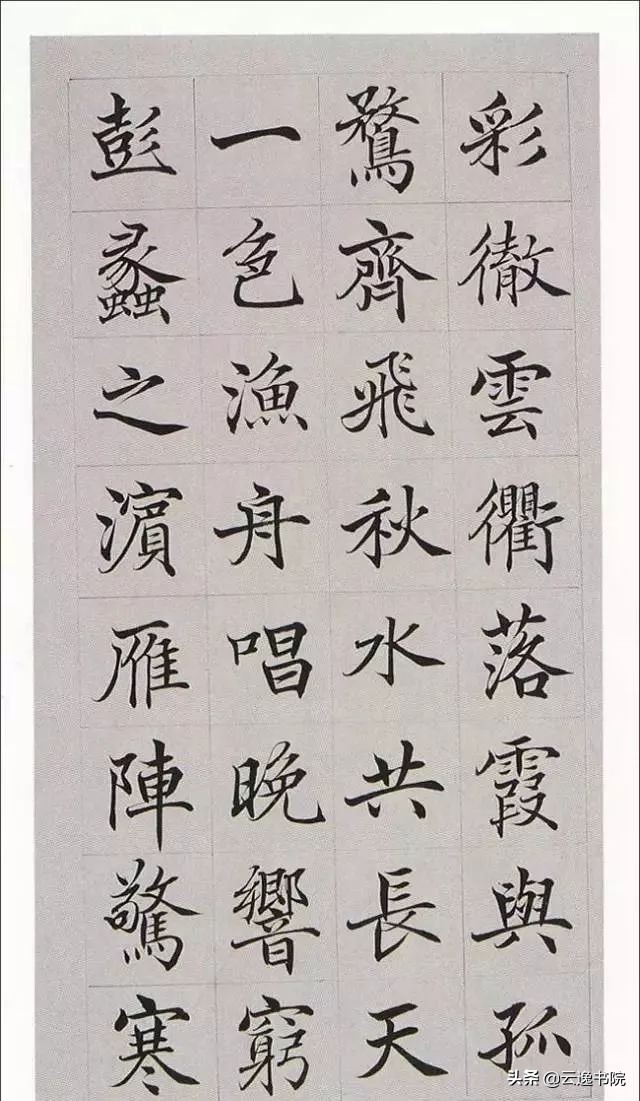 彩徹雲衢落霞與孤
鶩齊飛秋水共長天
一色漁舟唱晚響窮
彭蠡之濱雁陣驚寒
头条 @云逸书院